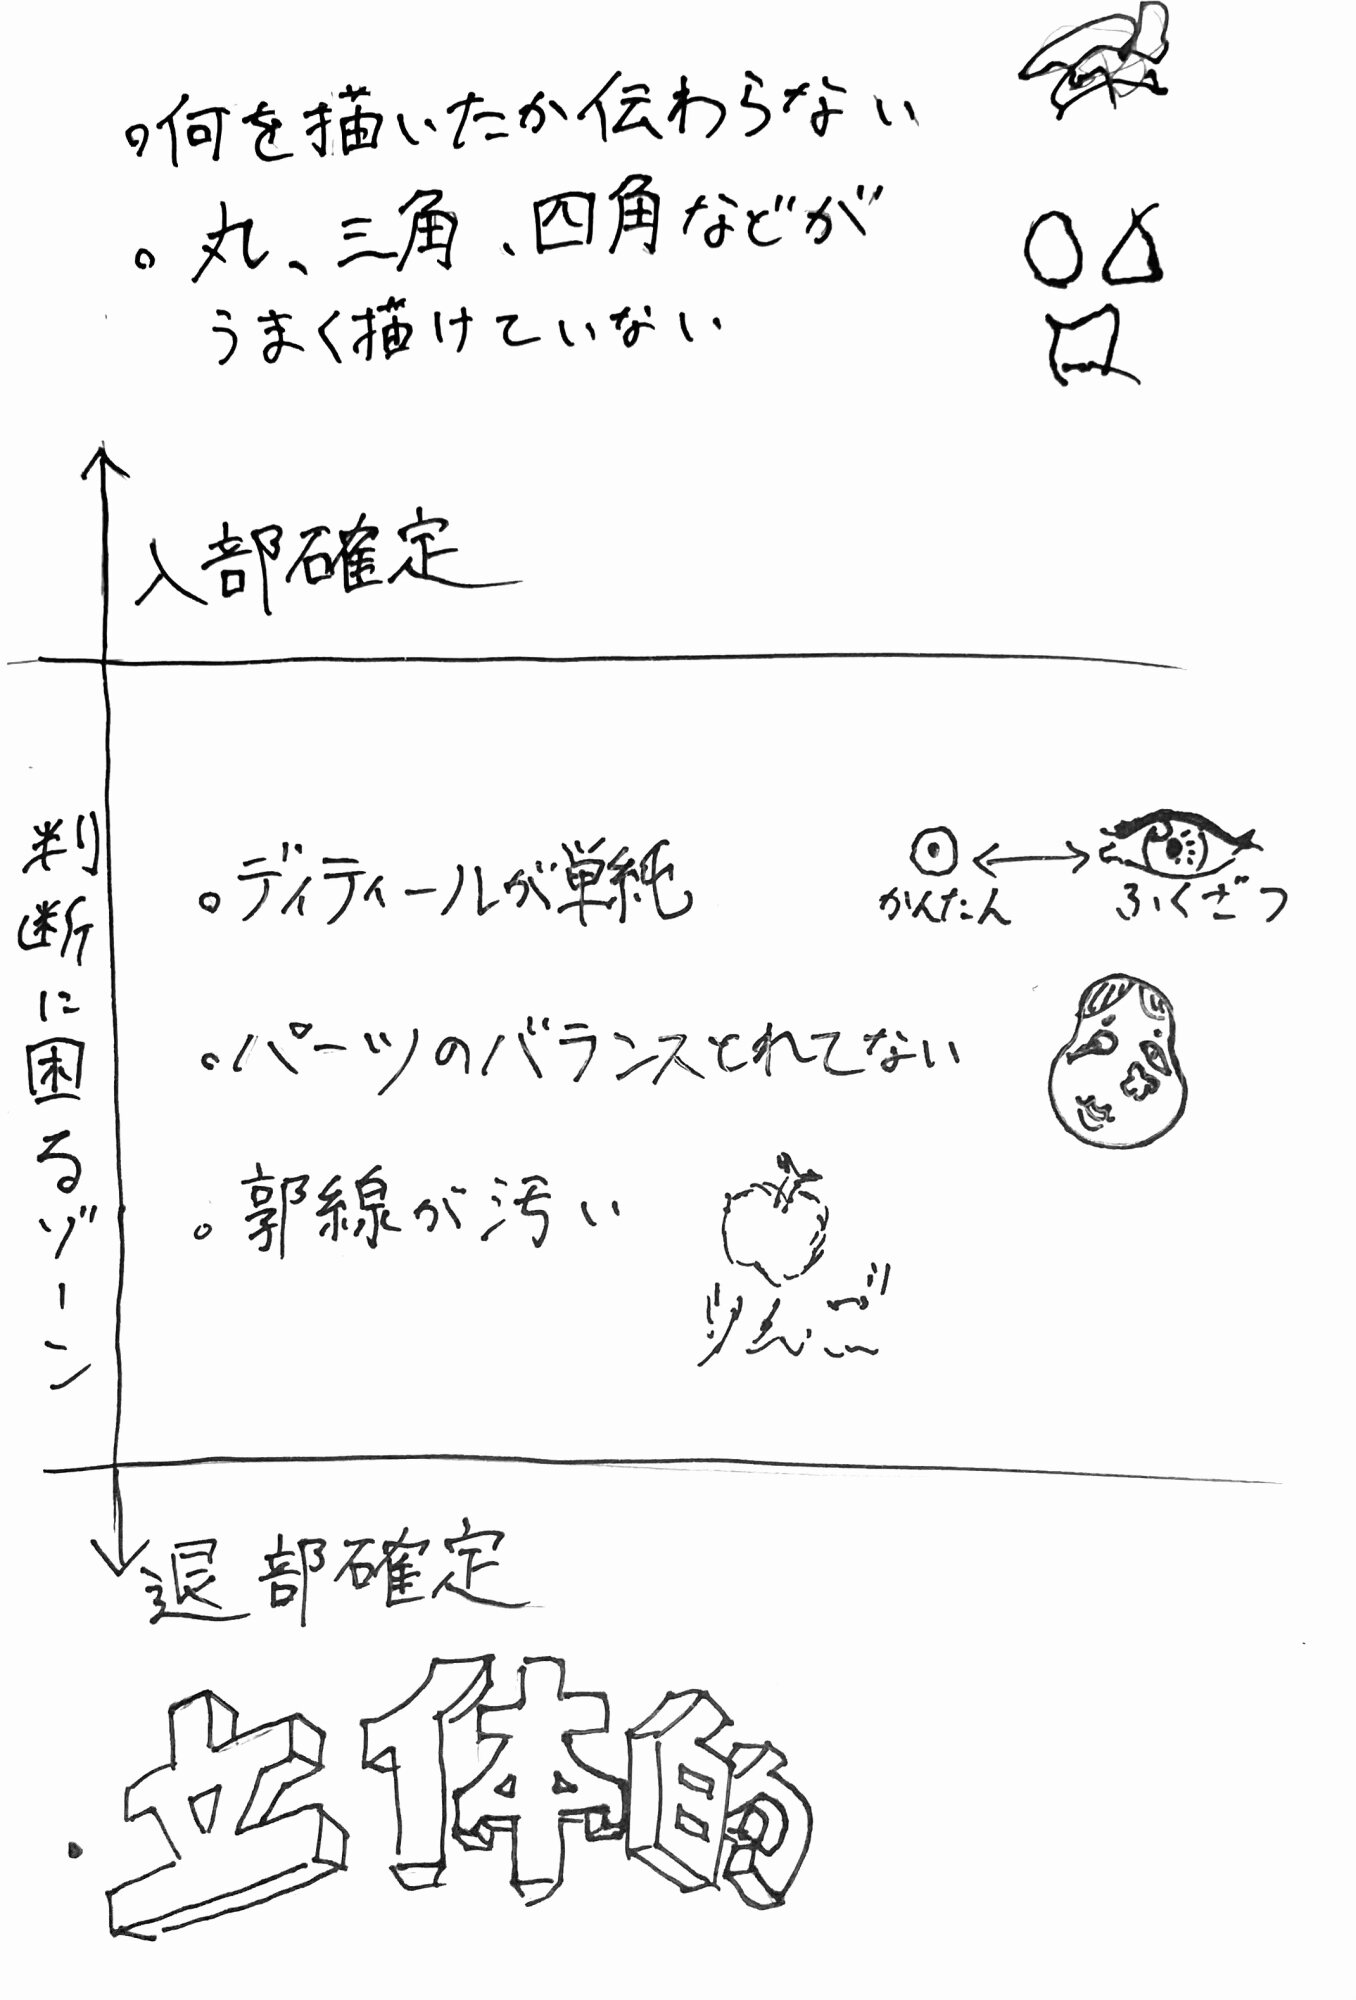 何を描いたか伝わらない
丸、三角、四角などが
うまく描けていない
入部確定
判断に困るゾーン
ディティールが単純
かんたん
ふくざつ
パーツのバランスとれてない
郭線が汚い
りんご
退部確定
立体的